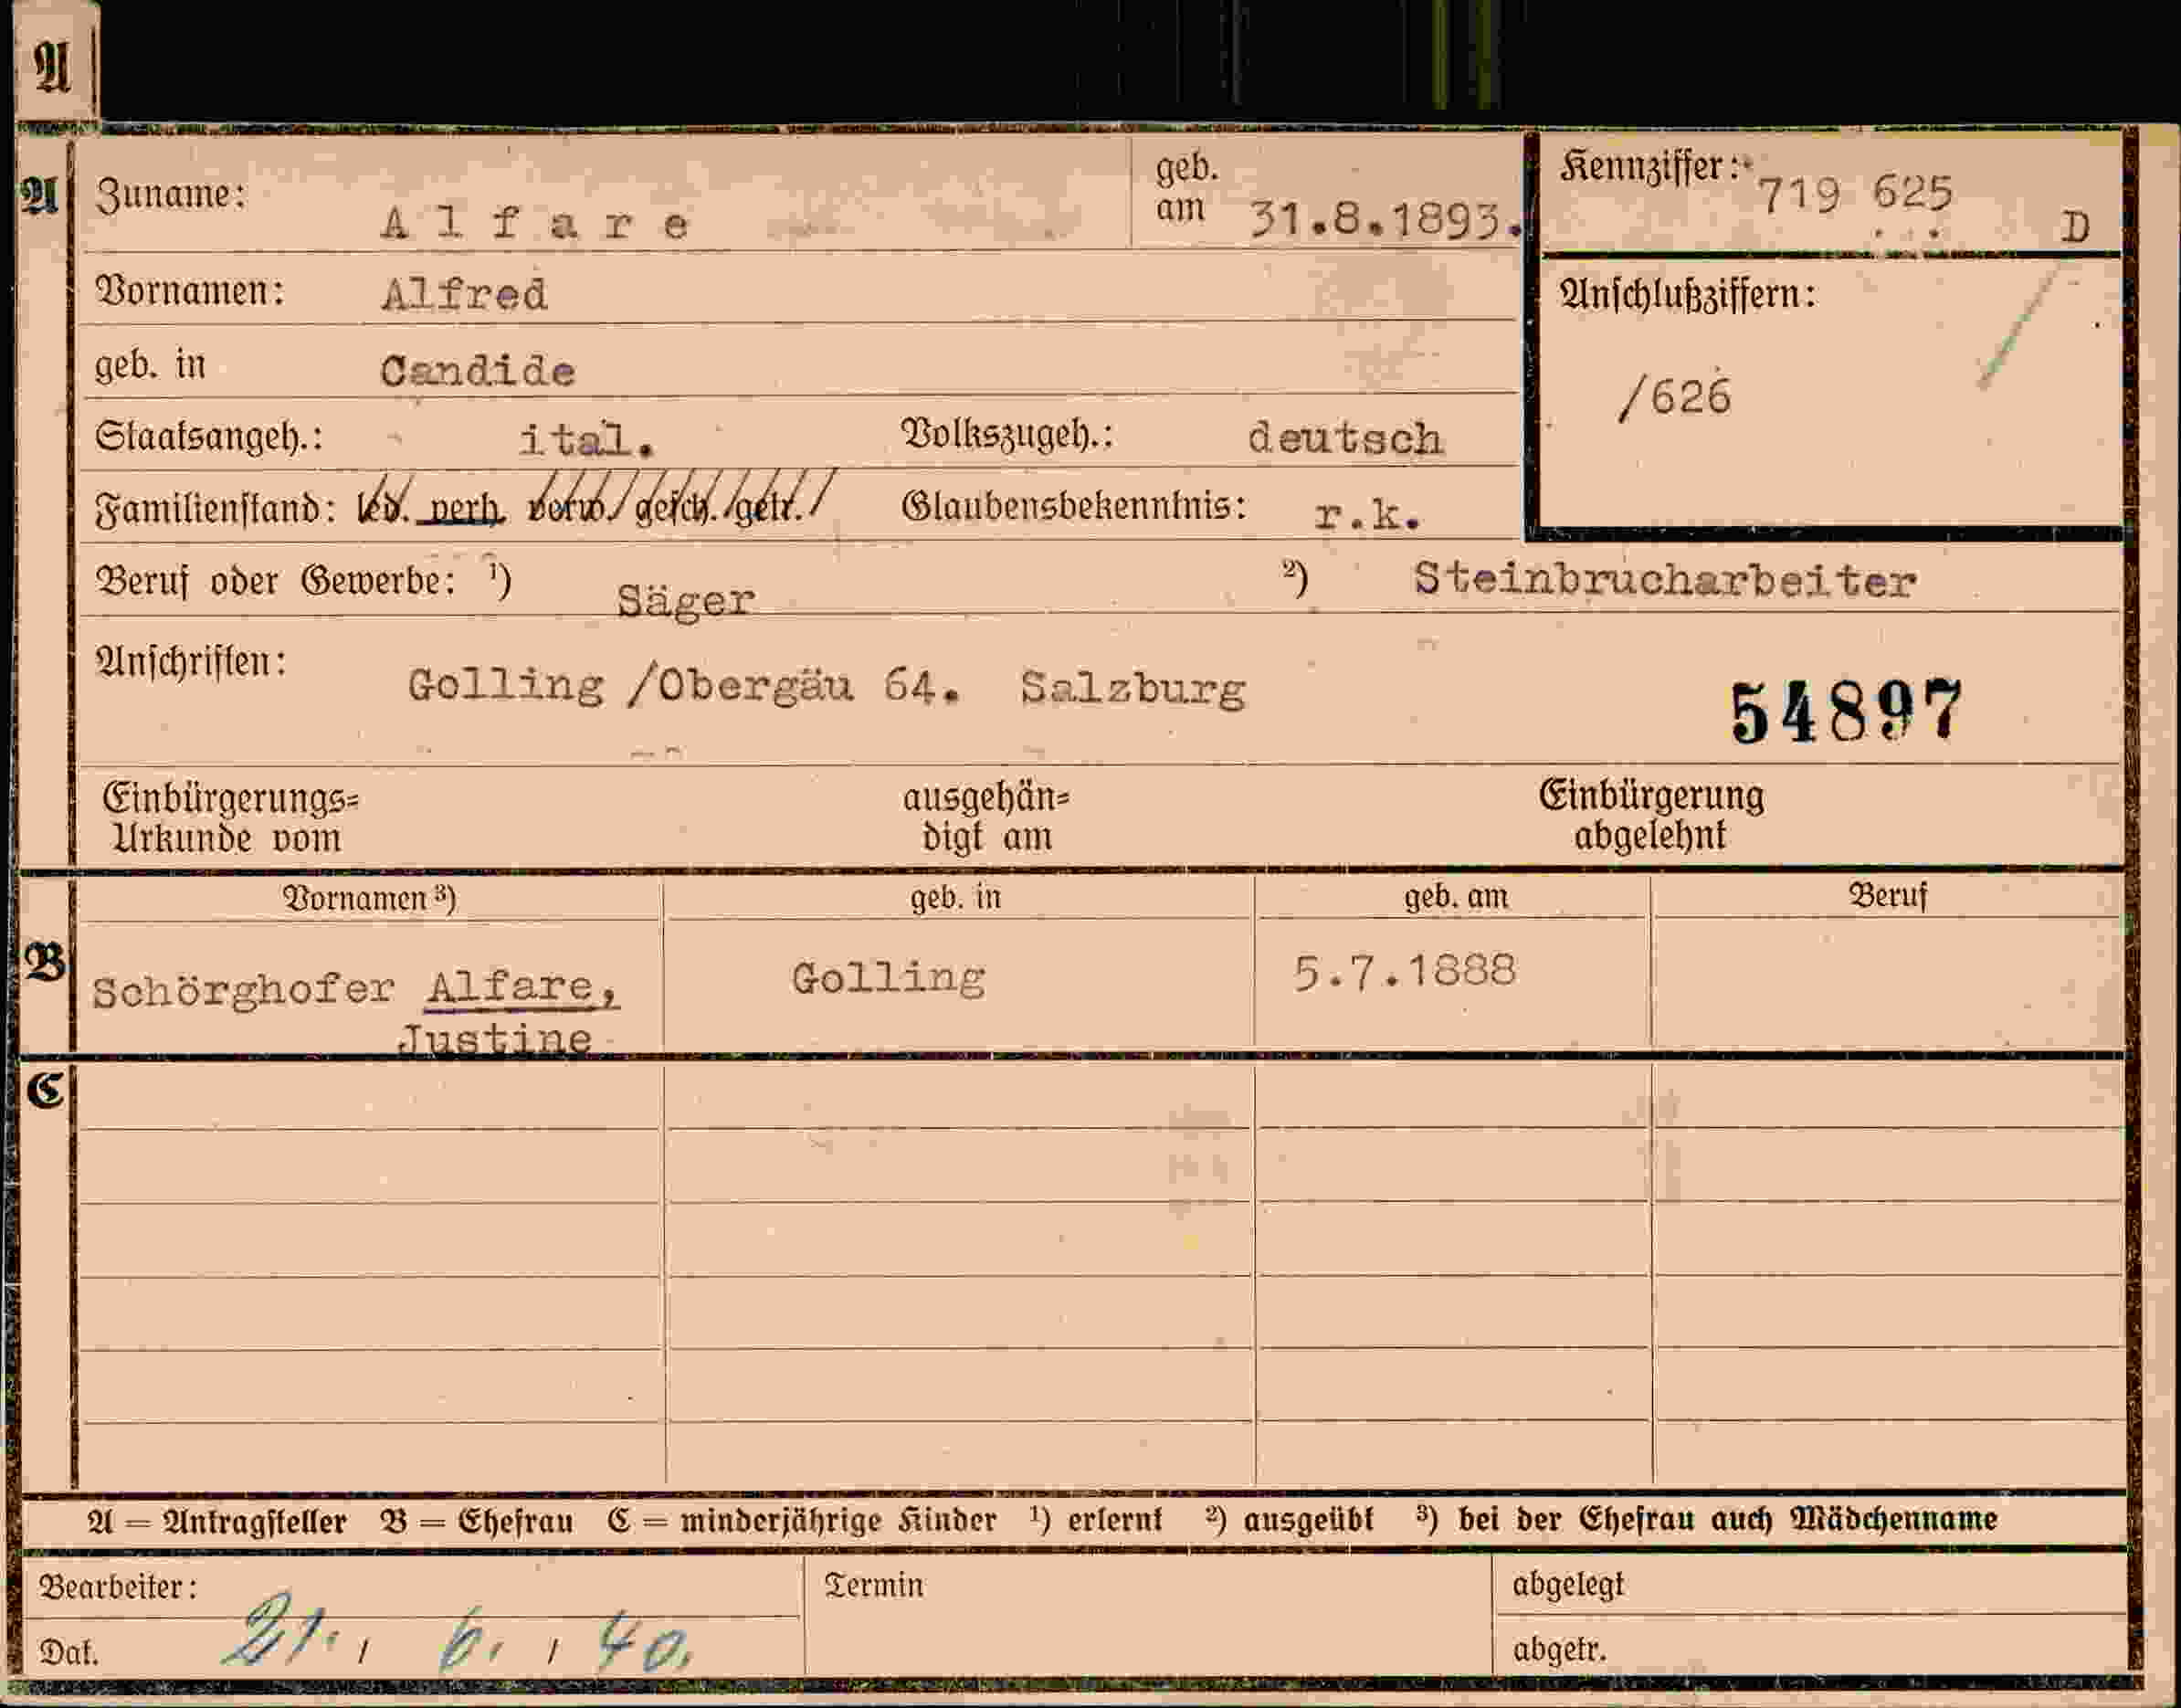 A
A Zuname: Alfare geb. am 31.8.1893. Kennziffer: 719 625 D
Vornamen: Alfred Anschlußziffern:
geb. in Candide /626
Staatsangeh.: ital. Volkszugeh.: deutsch
Familienstand: led. verh. verw. gesch. getr. Glaubensbekenntnis: r.k.
Beruf oder Gewerbe: ¹) Säger ²) Steinbrucharbeiter
Anschriften: Golling /Obergäu 64. Salzburg 54897
Einbürgerungs= ausgehän= Einbürgerung
Urkunde vom digt am abgelehnt
Vornamen ³) geb. in geb. am Beruf
B Schörghofer Alfare, Golling 5.7.1888
Justine
C
A = Antragsteller B = Ehefrau C = minderjährige Kinder ¹) erlernt ²) ausgeübt ³) bei der Ehefrau auch Mädchenname
Bearbeiter: Termin abgelegt
Dat. 21. / 6. / 40. abgetr.